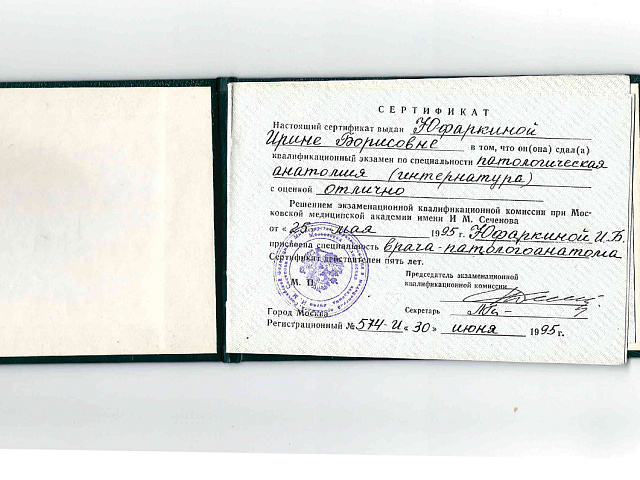 СЕРТИФИКАТ
Настоящий сертификат выдан Юфаркиной
Ирине Борисовне в том, что он(она) сдал(а)
квалификационный экзамен по специальности патологическая
анатомия (интернатура)
с оценкой отлично
Решением экзаменационной квалификационной комиссии при Мос-
ковской медицинской академии имени И М. Сеченова
от «25» мая 1995 г. Юфаркиной И.Б.
присвоена специальность врача-патологоанатома
Сертификат действителен пять лет.
Председатель экзаменационной
квалификационной комиссии
М. П.
Секретарь
Город Москва.
Регистрационный № 574-и «30» июня 1995 г.